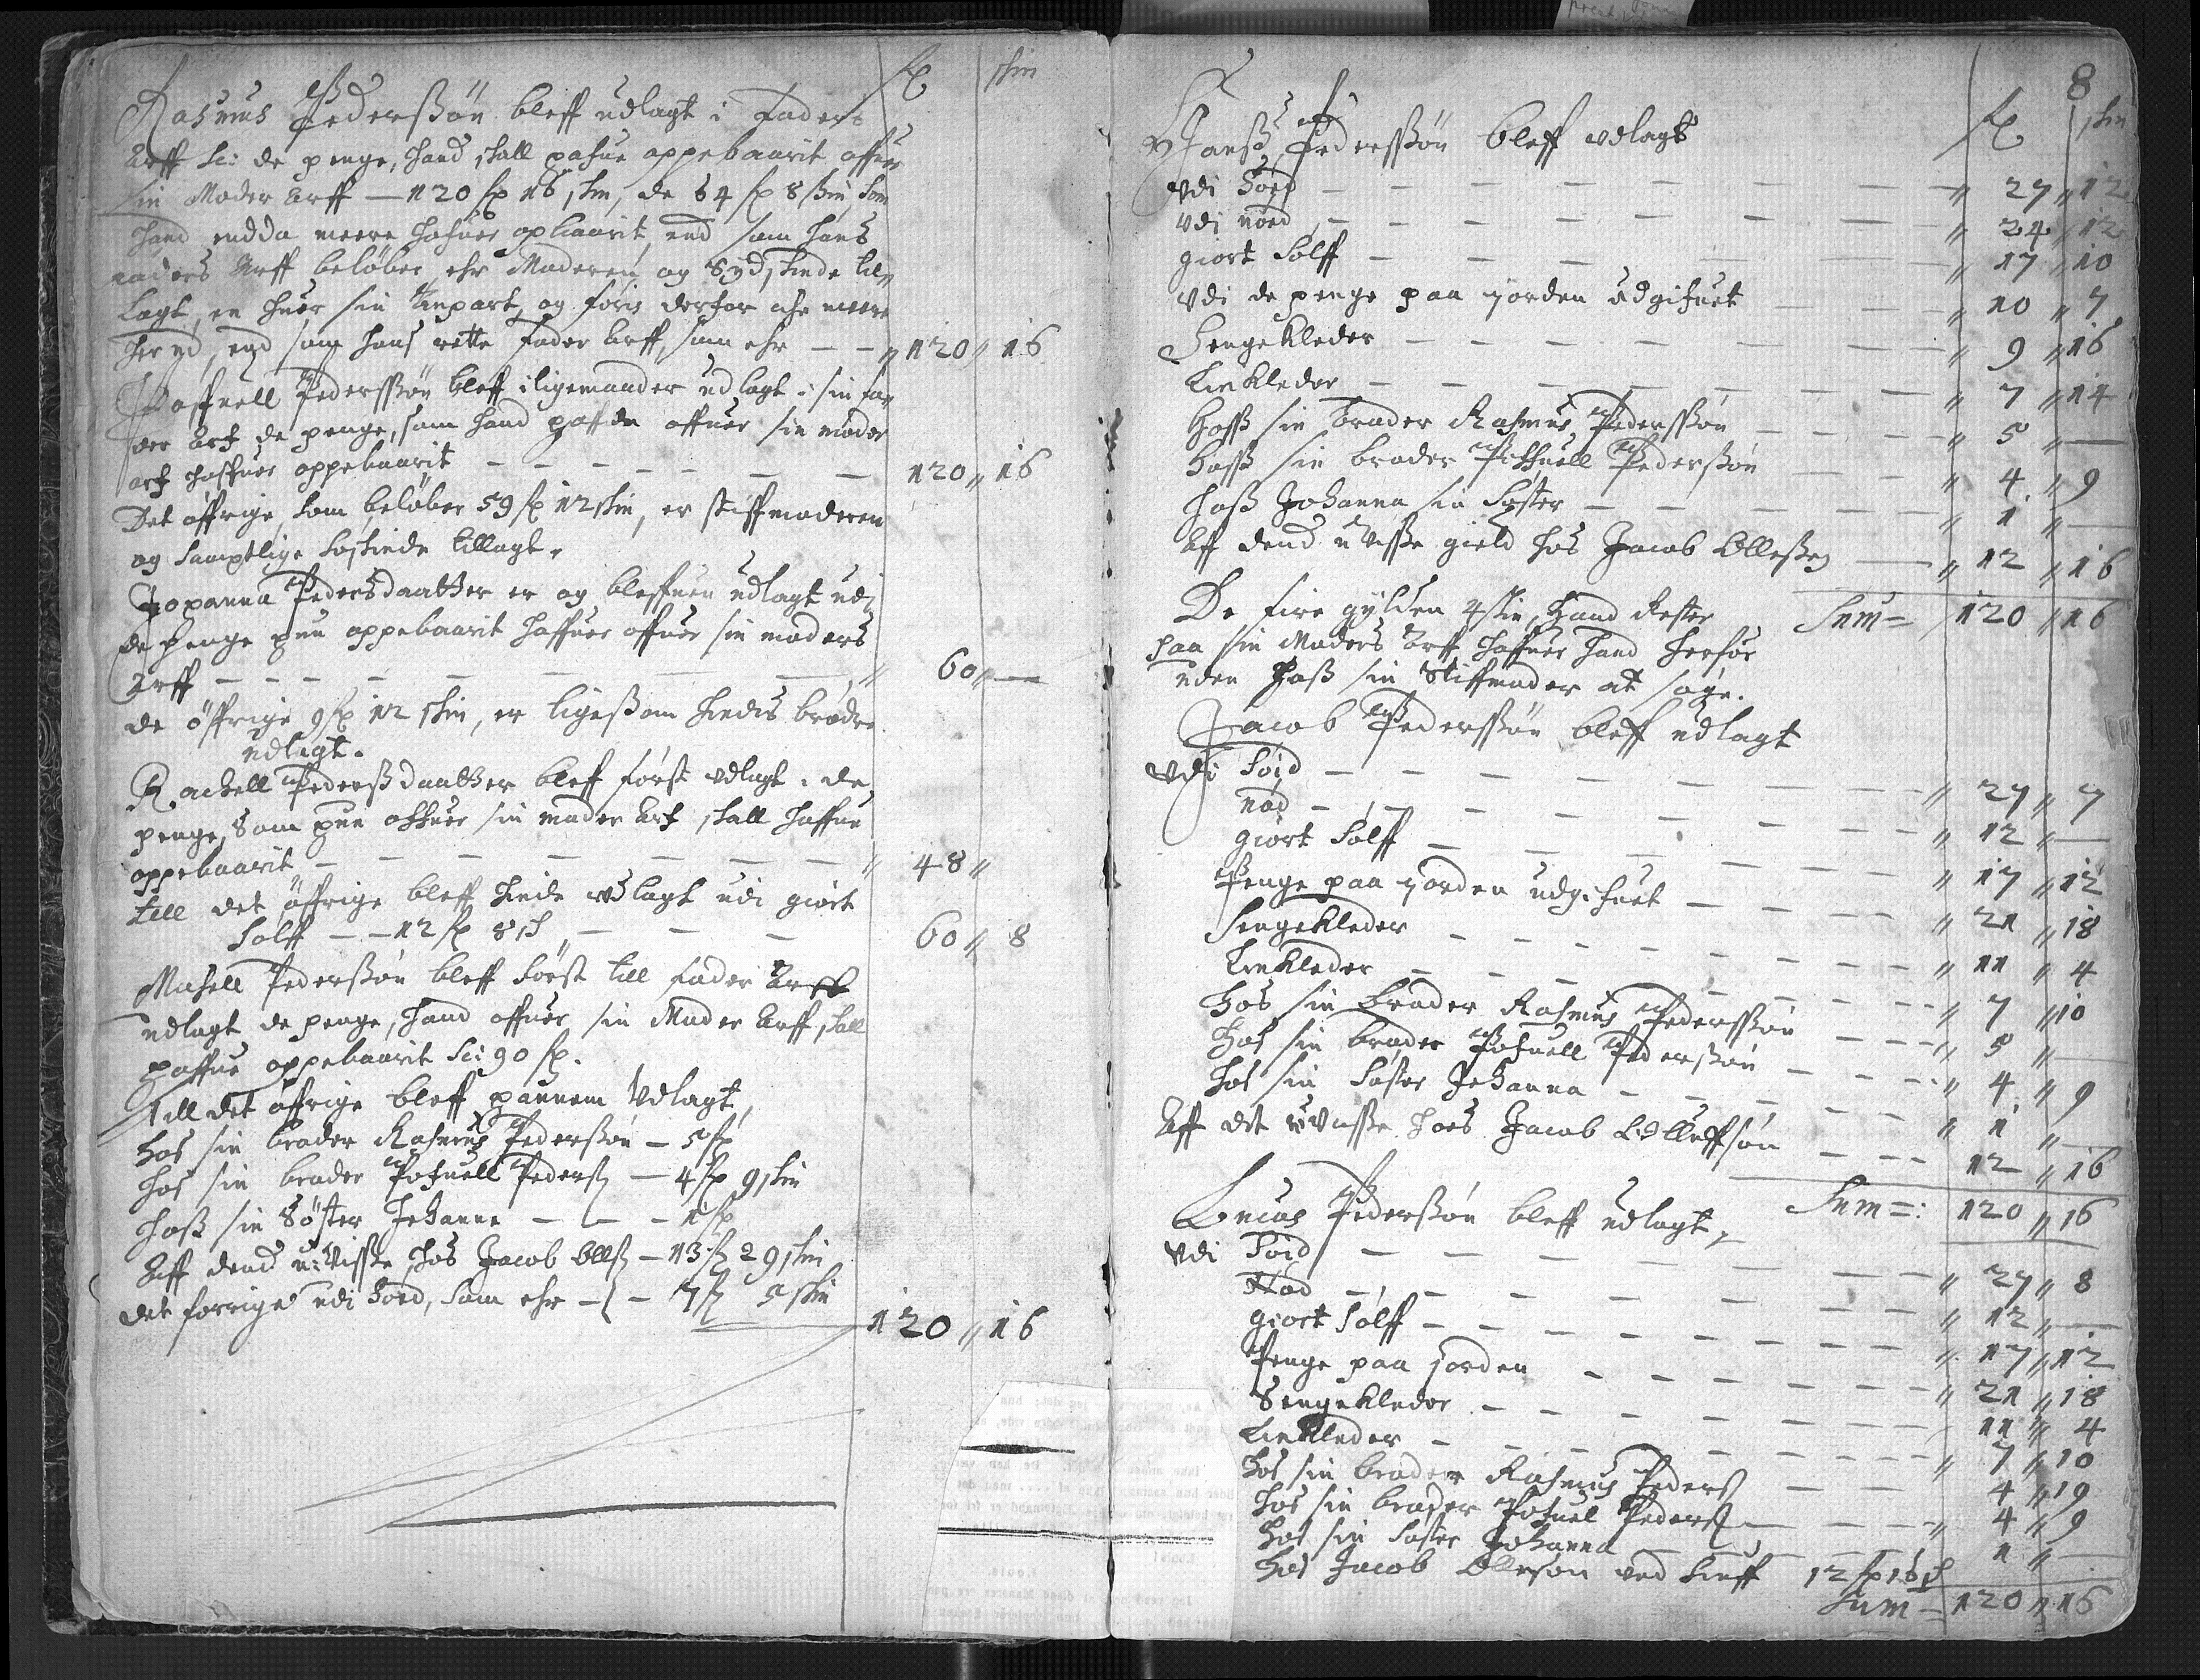 Rasmus Pederßøn bleff udlagt i Faders
Arff sc: de penge, hand skall hafue oppebaarit offuer
sin Moder Arff — 120 fl 16 skin, de 64 fl 8 skin, som
hand endda meere hafuer opbaarit, end som hans
faders Arff beløber, ehr Moderen og Sydskinde til„
lagt, en huer sin Anpart, og føris derfor iche meere
her ved, end som hans rette Fader Arff, som ehr — — „ 120 „ 16
Pofuell Pederßøn bleff iligemaader udlagt i sin fa„
der Arf de penge, som hand haffde offuer sin moder
arf haffuer oppebaarit — — — — — 120 „ 16
Det øffrige, som beløber 59 fl 12 skin, er stiffmoderen
og samptlige søskinde tillagt.
Johanna Pedersdaatter er og bleffuen udlagt udi
de penge hun oppebaarit haffuer offuer sin moders
Arff — — — — — — „ 60 „ —
de øffrige 9 fl 12 skin, er ligeßom hindis brødre
udlagt.
Rachell Pederßdaatter bleff først udlagt i de
penge, som hun offuer sin moder Arf skall haffue
oppebaarit — — — — — — „ 48 „
till det øffrige bleff hinde udlagt udi giort
Sølff — — 12 fl 8 sk — — — 60 „ 8
Mickell Pederßøn bleff først till fader Arff
udlagt de penge, hand offuer sin Moder Arff skall
haffue oppebaarit sc: 90 fl.
Till det øffrige bleff hannem Udlagt,
hos sin broder Rasmus Pederßøn — 5 fl
hos sin broder Pofuell Pederß — 4 fl 9 skin
hoß sin Søster Johanne — — — 1 fl
Aff dend u-visse hos Jacob Ollß — 13 fl 2 9 skin
det forrige udi Jord, som ehr — — 7 fl 5 skin
120 „ 16
8
fl skin
Hanß Pederßøn bleff udlagt
Udi Jord — — — — „ 27 „ 12
Udi nød — — — — „ 24 „ 12
giort Sølff — — — — „ 17 „ 10
Udi de penge paa jorden udgifuet — „ 10 „ 7
Sengekleder — — — — „ 9 „ 16
Linkleder — — — — „ 7 „ 14
hoß sin broder Rasmus Pederßøn — „ 5 „ —
hoß sin broder Pofuell Pederßøn — „ 4 „ 9
hoß Johanna sin Søster — — „ 1 „ —
Aff dend uvisse gield hos Jacob Olleßen — „ 12 „ 16
Sum = 120 „ 16
De fire gylden 4 skin, hand rester
paa sin Moders Arff haffuer hand herfor
uden hoß sin Stiffmoder at søge.
Jacob Pederßøn bleff udlagt
Udi Jord — — — — „ 27 „ 7
nød — — — — „ 12 „ —
giort Sølff — — — — „ 17 „ 12
Penge paa jorden udgifuet — — „ 21 „ 18
Sengekleder — — — — „ 11 „ 4
Linkleder — — — — „ 7 „ 10
hos sin broder Rasmus Pederßøn — — „ 5 „
hos sin broder Pofuell Pederßøn — — „ 4 „ 9
hos sin Søster Johanna — — — „ 1 „ —
Aff det uvisse hoes Jacob Olleffsøn — — 12 „ 16
Sum =: 120 „ 16
Lucas Pederßøn bleff udlagt,
Udi Jord — — — — „ 27 „ 8
Nød — — — — „ 12 „ —
giort Sølff — — — — „ 17 „ 12
Penge paa jorden — — — — „ 21 „ 18
Sengekleder — — — — 11 „ 4
Linkleder — — — — „ 7 „ 10
hos sin broder Rasmus Pederß — — 4 „ 19
hos sin broder Pofuel Pederß — — „ 4 „ 9
hos sin Søster Johanna — — 1 „ —
hos Jacob Ollesøn 12 fl 16 sk
Sum = 120 „ 16